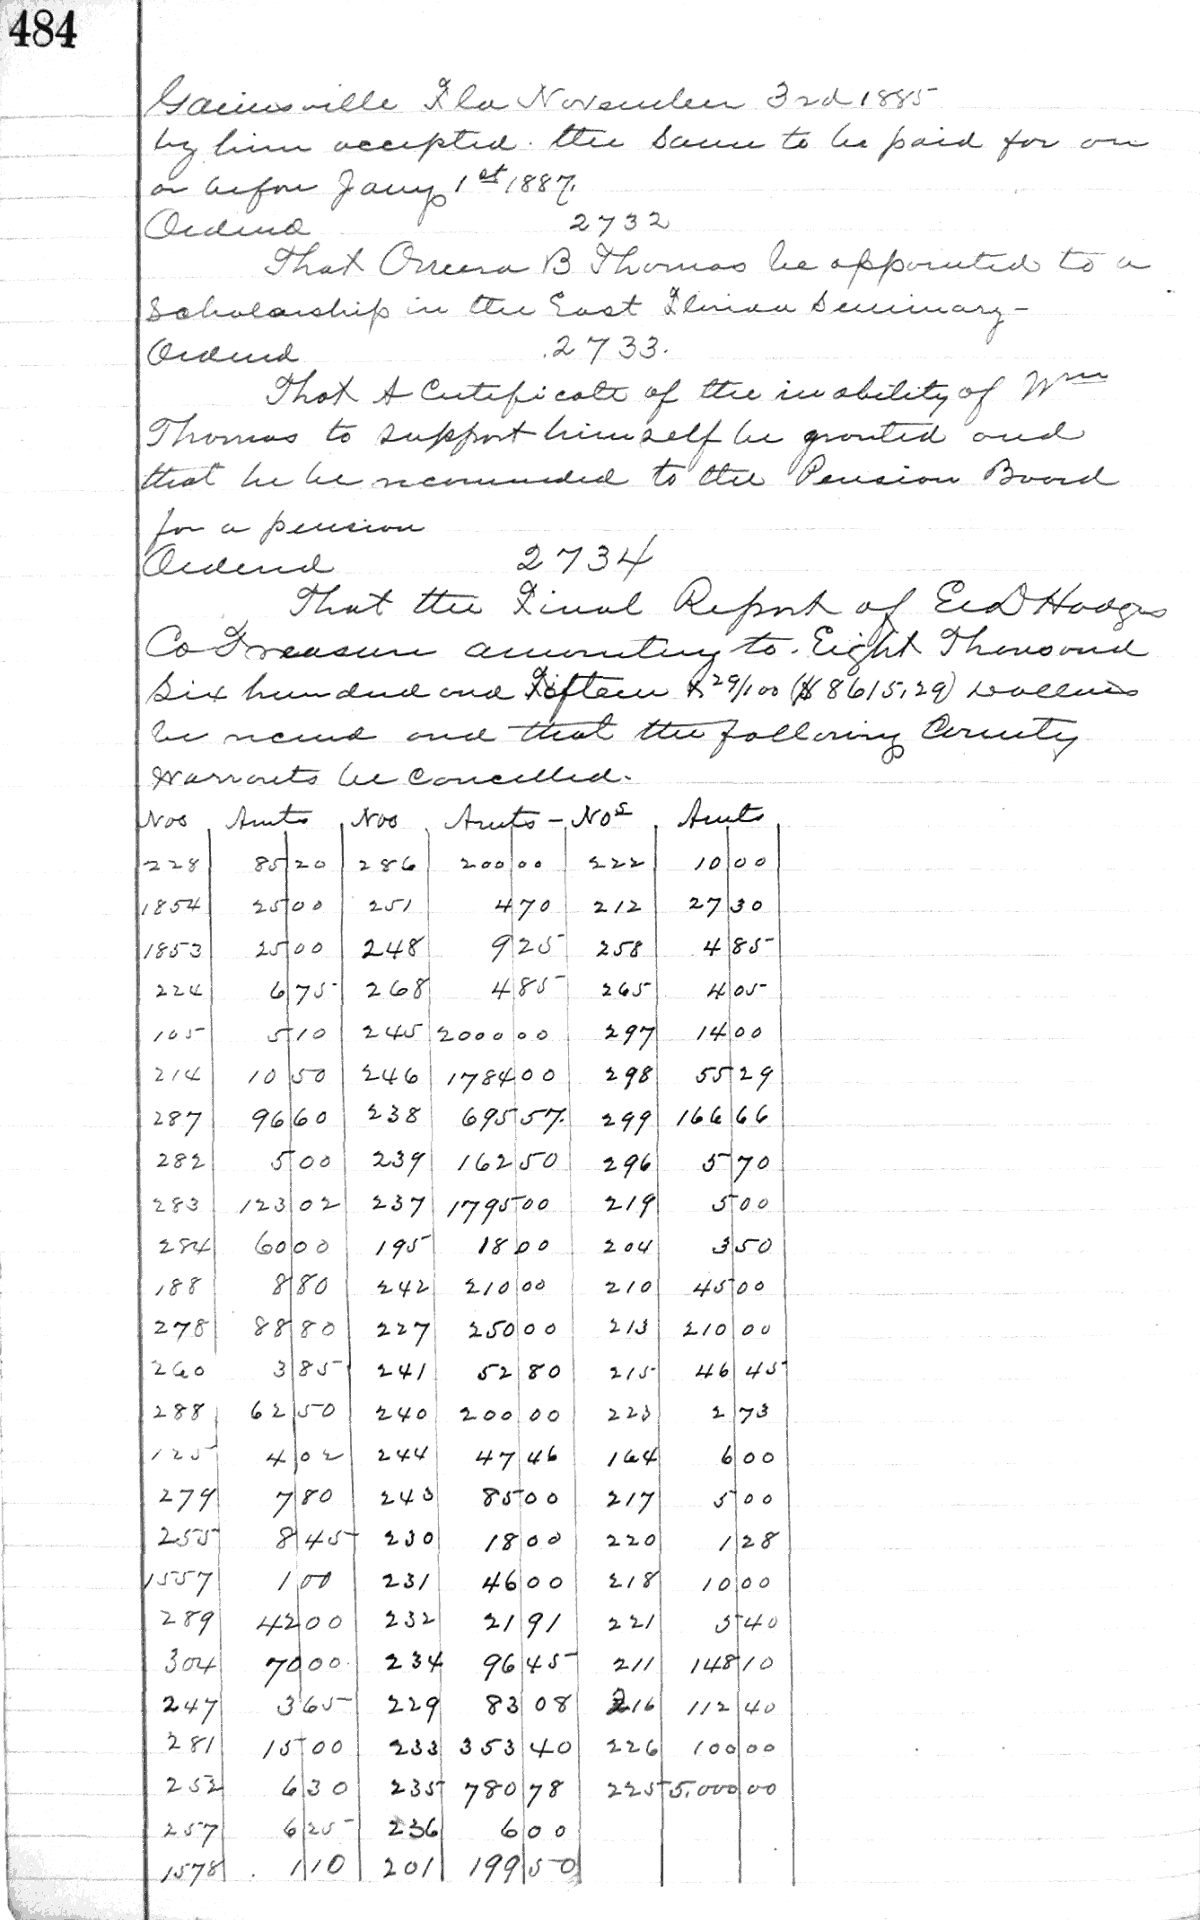 484
Gainesville Fla November 3rd 1885
by him accepted. the same to be paid for on
or before Jany 1st 1887.
Ordered 2732
That Orreera B Thomas be appointed to a
Scholarship in the East Florida Seminary-
Ordered 2733.
That A Certificate of the inability of Wm
Thomas to support himself be granted and
that he be recommended to the Pension Board
for a pension
Ordered 2734
That the Final Report of Hodges
Co Treasurer amounting to. Eight Thousand
Six hundred and Fifteen & 29/100 ($8615.29) Dollars
be received and that the following County
Warrants be Cancelled.
Nos Amts Nos Amts - Nos Amts
228 85 20 286 200 00 222 10 00
1854 25 00 251 4 70 212 27 30
1853 25 00 248 9 25 258 4 85
224 6 75 268 4 85 265 4 05
105 5 10 245 2000 00 297 14 00
214 10 50 246 1784 00 298 55 29
287 96 60 238 695 57. 299 166 66
282 5 00 239 162 50 296 5 70
283 123 02 237 1795 00 219 5 00
284 60 00 195 18 00 204 3 50
188 8 80 242 210 00 210 45 00
278 88 80 227 250 00 213 210 00
260 3 85 241 52 80 215 46 45
288 62 50 240 200 00 223 2 73
125 4 02 244 47 46 164 6 00
279 7 80 243 85 00 217 5 00
255 8 45 230 18 00 220 1 28
1557 1 00 231 46 00 218 10 00
289 42 00 232 21 91 221 5 40
304 70 00 234 96 45 211 148 10
247 3 65 229 83 08 216 112 40
281 15 00 233 353 40 226 100 00
252 6 30 235 780 78 225 5,000 00
257 6 25 236 6 00
1578 1 10 201 199 50